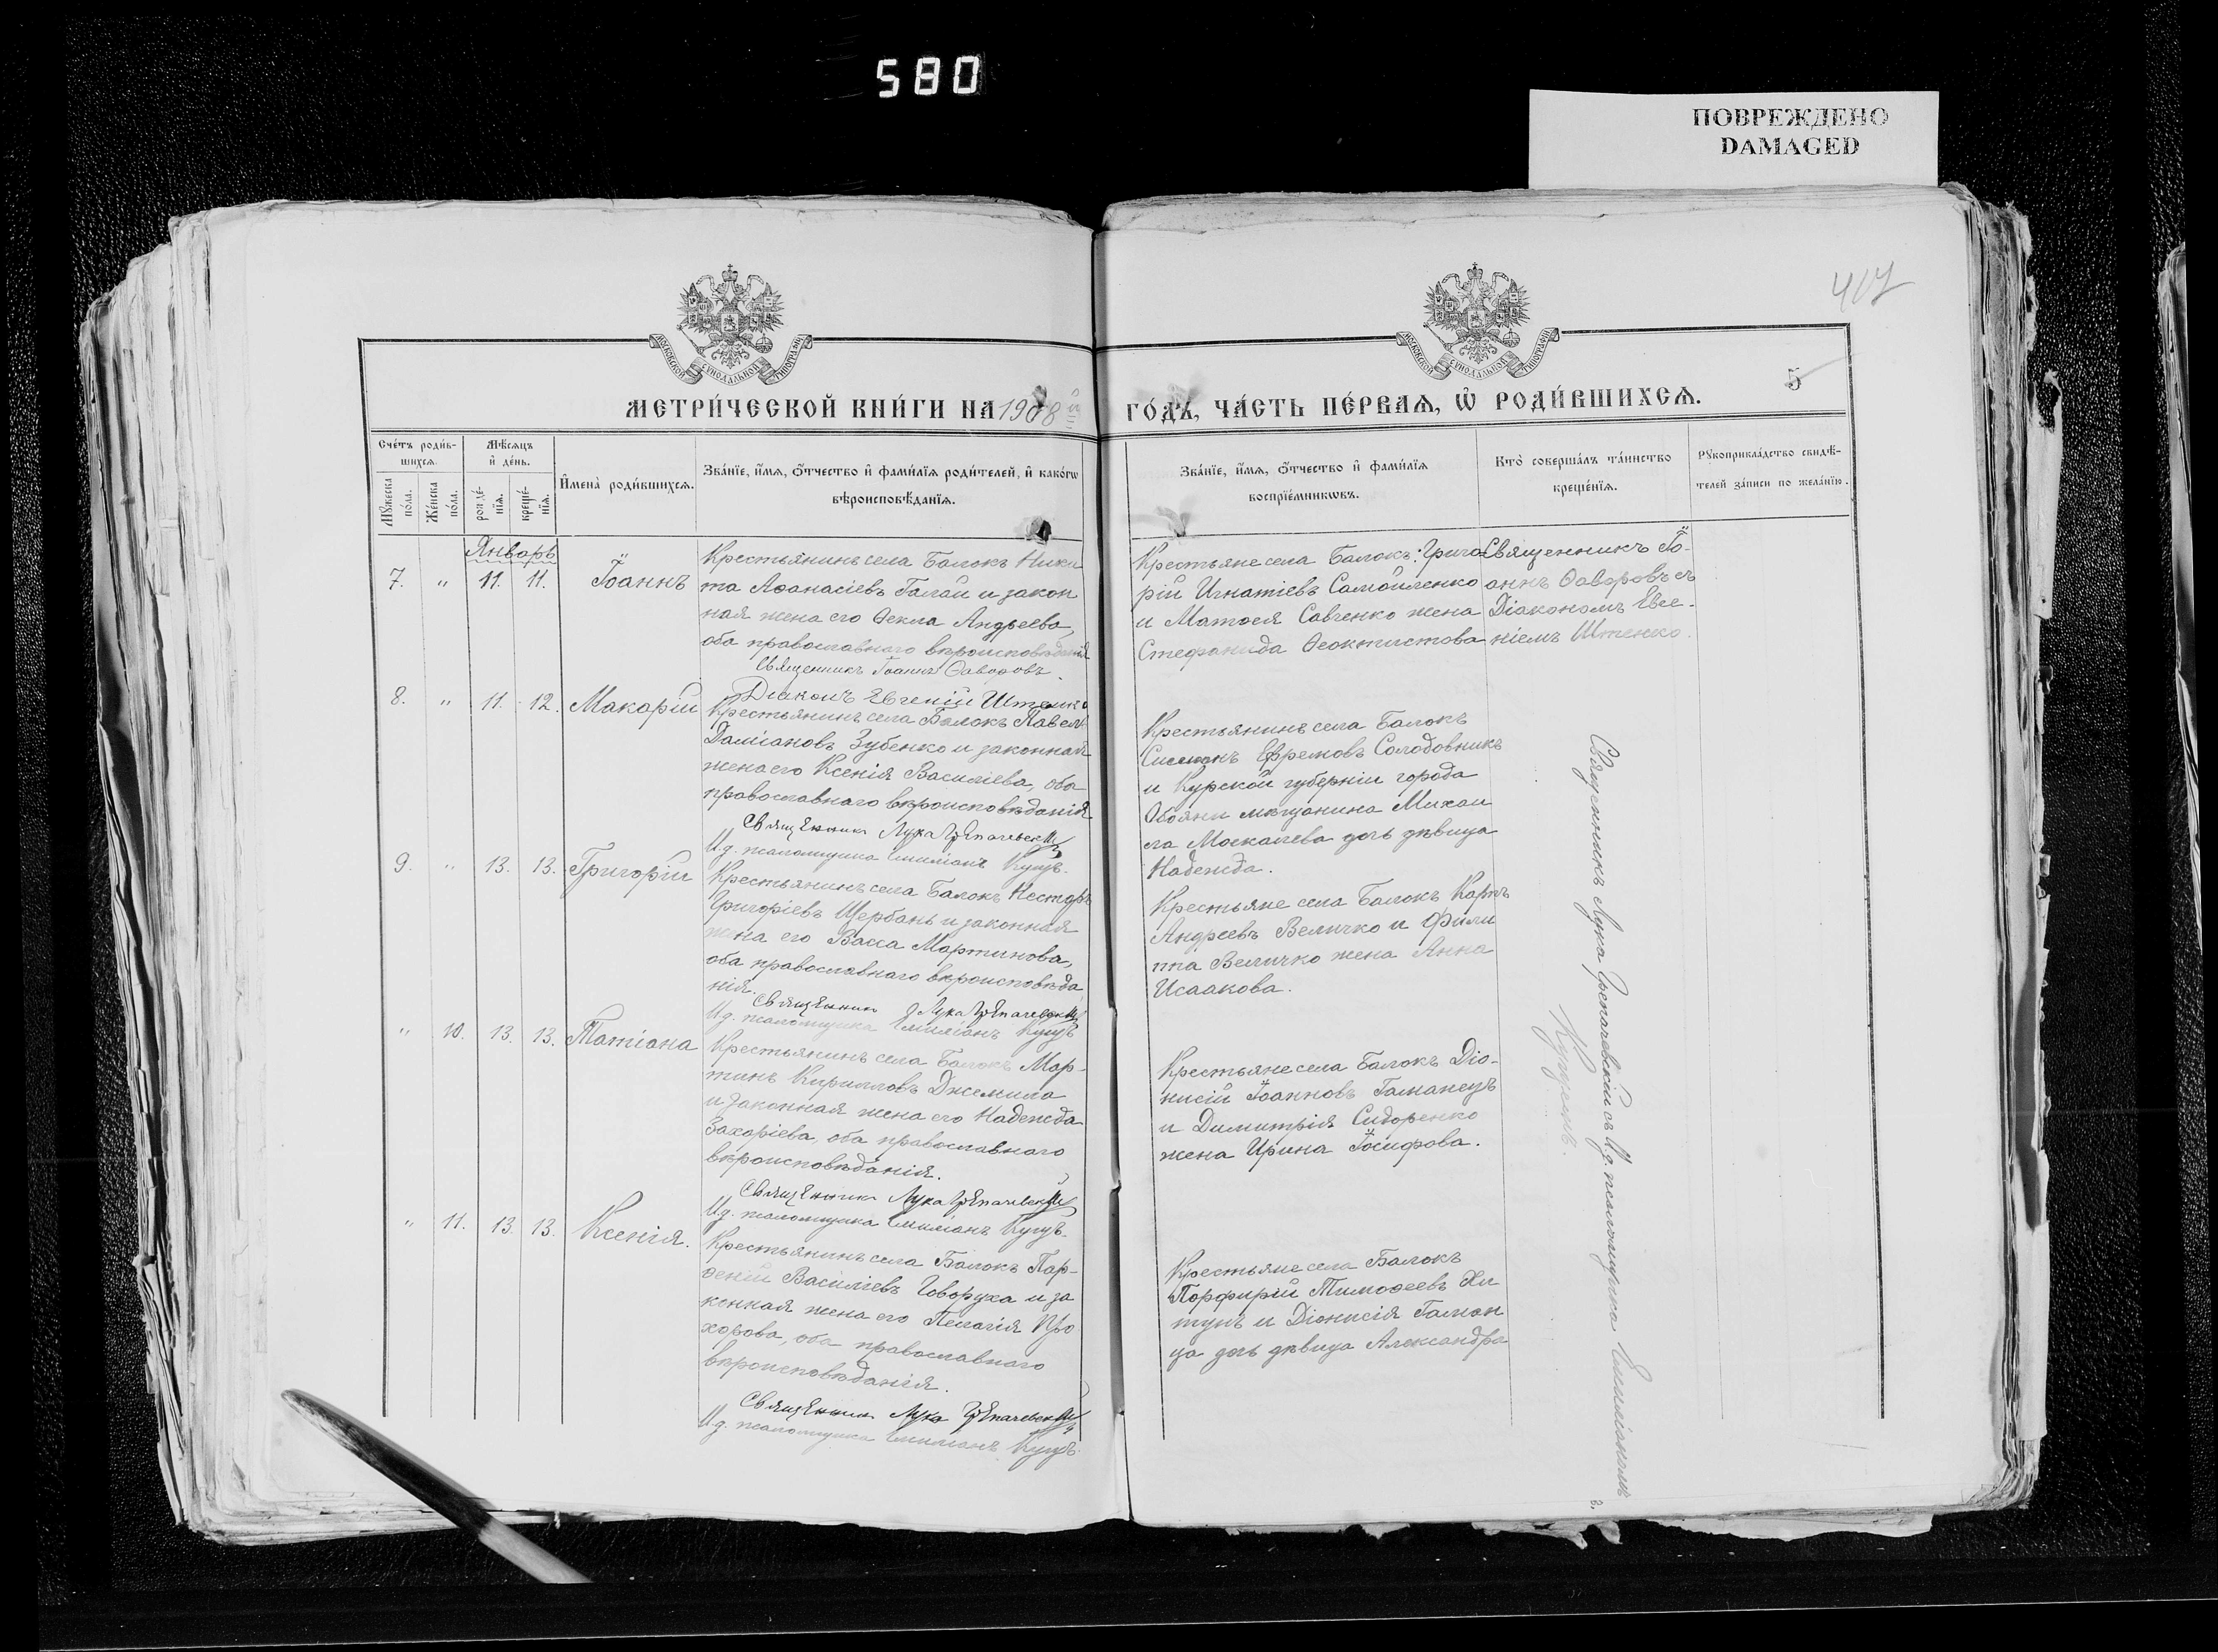 580
ПОВРЕЖДЕНО
DAMAGED
407
5
МЕТРИ́ЧЕСКОЙ КНИ́ГИ НА 1908 й
ГО́ДЪ, ЧА́СТЬ ПЕ́РВАѦ, Ѡ҆ РОДИ́ВШИХСѦ.
МОСКОВСКОЙ СѴНОДАЛЬНОЙ ТИПОГРАФІИ
МОСКОВСКОЙ СѴНОДАЛЬНОЙ ТИПОГРАФІИ
Сче́тъ роди́в-
шихсѧ.
Мѣ́сѧцъ
и҆ де́нь.
Мꙋ́жеска
по́ла.
Же́нска
по́ла.
рожде́-
нїѧ.
креще́-
нїѧ.
И҆мена̀ роди́вшихсѧ.
Зва́нїе, и҆́мѧ, ѻ҆́тчество и҆ фами́лїѧ роди́телей, и҆ како́гѡ
вѣроисповѣ́данїѧ.
Зва́нїе, и҆́мѧ, ѻ҆́тчество и҆ фами́лїѧ
воспрїе́мникѡвъ.
Кто̀ соверша́лъ та́инство
креще́нїѧ.
Рꙋкоприкла́дство свидѣ́-
телей за́писи по жела́нїю.
Январь
7. " 11. 11. Іоаннъ
Крестьянинъ села Балокъ Ники
та Аѳанасіевъ Галай и закон
ная жена его Ѳекла Андреева,
оба православнаго вѣроисповѣданія
Священникъ Іоаннъ Ѳаворовъ.
Діаконъ Евгеній Штенко
Крестьяне села Балокъ: Григо
рій Игнатіевъ Самойленко
и Матѳея Савченко жена
Стефанида Ѳеоктистова
Священникъ Іо-
аннъ Ѳаворовъ съ
Діакономъ Евге-
ніемъ Штенко.
8. " 11. 12. Макарій
Крестьянинъ села Балокъ Павелъ
Даміановъ Зубенко и законная
жена его Ксенія Василіева, оба
православнаго вѣроисповѣданія
Священникъ Лука Грепачевскій
И.д. псаломщика Емиліанъ Куцъ.
Крестьянинъ села Балокъ
Симеонъ Ефремовъ Солодовникъ
и Курской губерніи города
Обояни мѣщанина Михаи
ла Москалева дочь дѣвица
Надежда.
9. " 13. 13. Григорій
Крестьянинъ села Балокъ Несторъ
Григоріевъ Щербань и законная
жена его Васса Мартинова,
оба православнаго вѣроисповѣда
нія.
Священникъ Лука Грепачевскій
И.д. псаломщика Емиліанъ Куцъ
Крестьяне села Балокъ Карпъ
Андреевъ Величко и Фили
ппа Величко жена Анна
Исаакова.
" 10. 13. 13. Татіана
Крестьянинъ села Балокъ Мар-
тинъ Кирилловъ Джемила
и законная жена его Надежда
Захаріева, оба православнаго
вѣроисповѣданія.
Священникъ Лука Грепачевскій
И.д. псаломщика Емиліанъ Куцъ.
Крестьяне села Балокъ Діо-
нисій Іоанновъ Гаманецъ
и Димитрія Сидоренко
жена Ирина Іосифова.
" 11. 13. 13. Ксенія.
Крестьянинъ села Балокъ Пар-
ѳеній Василіевъ Говоруха и за
конная жена его Пелагія Про
хорова, оба православнаго
вѣроисповѣданія.
Священникъ Лука Грепачевскій
И.д. псаломщика Емиліанъ Куцъ.
Крестьяне села Балокъ
Порфирій Тимоѳеевъ Хи
тунъ и Діонисія Гаман
ца дочь дѣвица Александра
Священникъ Лука Грепачевскій съ И.д. псаломщика Емиліаномъ
Куцемъ.